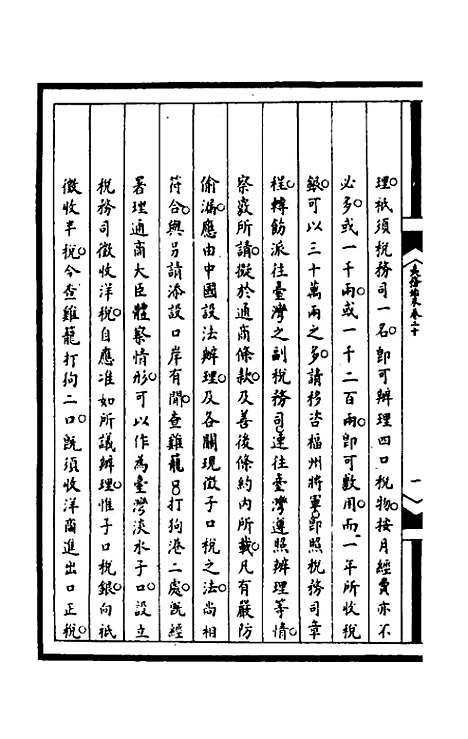 理。祇須稅務司一名。卽可辦理四口稅物。按月經費亦不
必多。或一千兩。或一千二百兩。卽可敷用。而一年所收稅
銀。可以三十萬兩之多。請移咨福州將軍。卽照稅務司章
程。轉飭派往臺灣之副稅務司。速往臺灣遵照辦理等情。
察核所請。擬於通商條款。及善後條約內所載。凡有嚴防
偷漏。應由中國設法辦理。及各關現徵子口稅之法。尚相
符合。與另請添設口岸有閒。查雞籠口打狗港二處。旣經
署理通商大臣體察情形。可以作為臺灣淡水子口。設立
稅務司徵收洋稅。自應准如所議辦理。惟子口稅銀。向祇
徵收半稅。今查雞籠打狗二口。旣須收洋商進出口正稅。
夷務始末卷二十
一